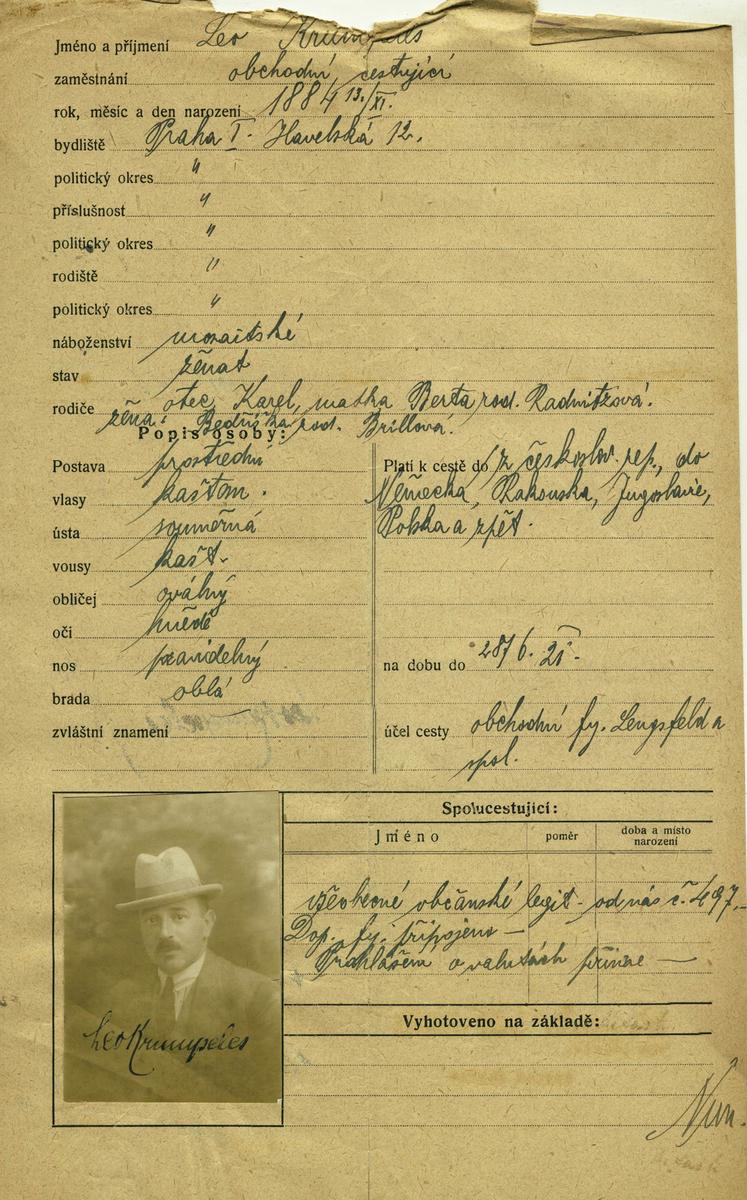 Jméno a příjmení Leo Krumpeles
zaměstnání obchodní cestující
rok, měsíc a den narození 1884 13./XI.
bydliště Praha I. Havelská 12.
politický okres "
příslušnost "
politický okres "
rodiště "
politický okres "
náboženství mosaitské
stav ženat
rodiče otec Karel, matka Berta rod. Radnitzová.
žena: Bedřiška rod. Brillová.
Popis osoby:
Postava prostřední
vlasy kaštan.
ústa souměrná
vousy kašt.
obličej oválný
oči hnědé
nos pravidelný
brada oblá
zvláštní znamení
Platí k cestě do /z českoslov. rep., do
Německa, Rakouska, Jugoslavie,
Polska a zpět.
na dobu do 28/6. 21.
účel cesty obchodní fy. Lengsfeld a
spol.
Spolucestující:
Jméno poměr doba a místo narození
všeobecné občanské legit. od nás č. 497.-
Dop. fy. připojeno —
Prohlášení o valutách —
Vyhotoveno na základě:
Leo Krumpeles